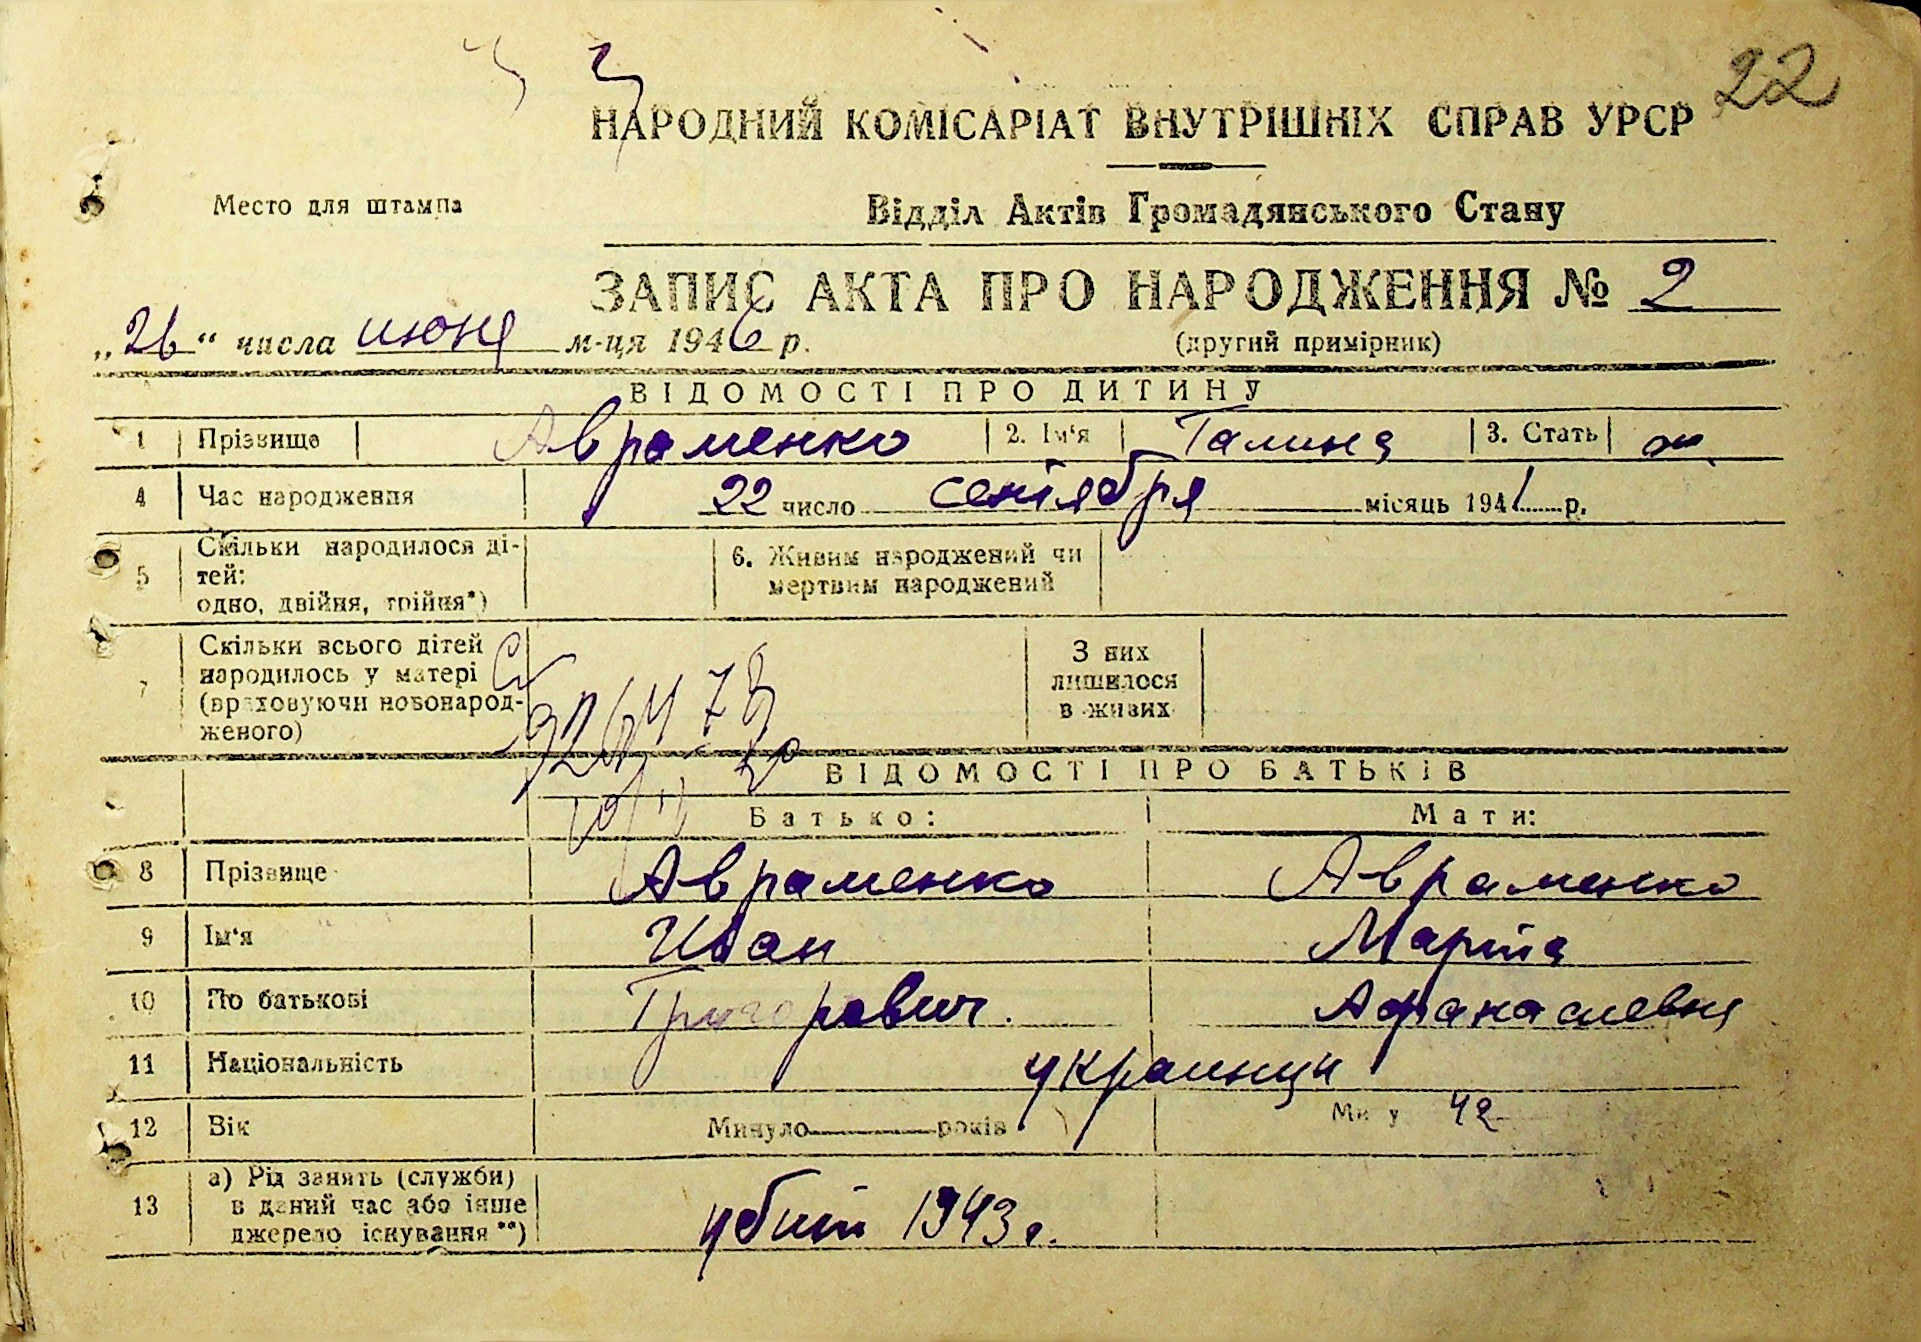 22
НАРОДНИЙ КОМІСАРІАТ ВНУТРІШНІХ СПРАВ УРСР
Место для штампа
Відділ Актів Громадянського Стану
ЗАПИС АКТА ПРО НАРОДЖЕННЯ № 2
„26“ числа июня м-ця 1946 р.
(другий примірник)
ВІДОМОСТІ ПРО ДИТИНУ
1 Прізвище Авраменко 2. Ім'я Галина 3. Стать ж.
4 Час народження 22 число сентября місяць 1941 р.
5 Скільки народилося ді-
тей:
одно, двійня, трійня*)
6. Живим народжений чи
мертвим народжений
7 Скільки всього дітей
народилось у матері
(враховуючи новонарод-
женого)
З них
лишилося
в живих
ВІДОМОСТІ ПРО БАТЬКІВ
Батько: Мати:
8 Прізвище Авраменко Авраменко
9 Ім'я Иван Марта
10 По батькові Григорович. Афанасиевна
11 Національність украинци
12 Вік Минуло років 42
13 а) Рід занять (служби)
в даний час або інше
джерело існування **)
убит 1943 г.